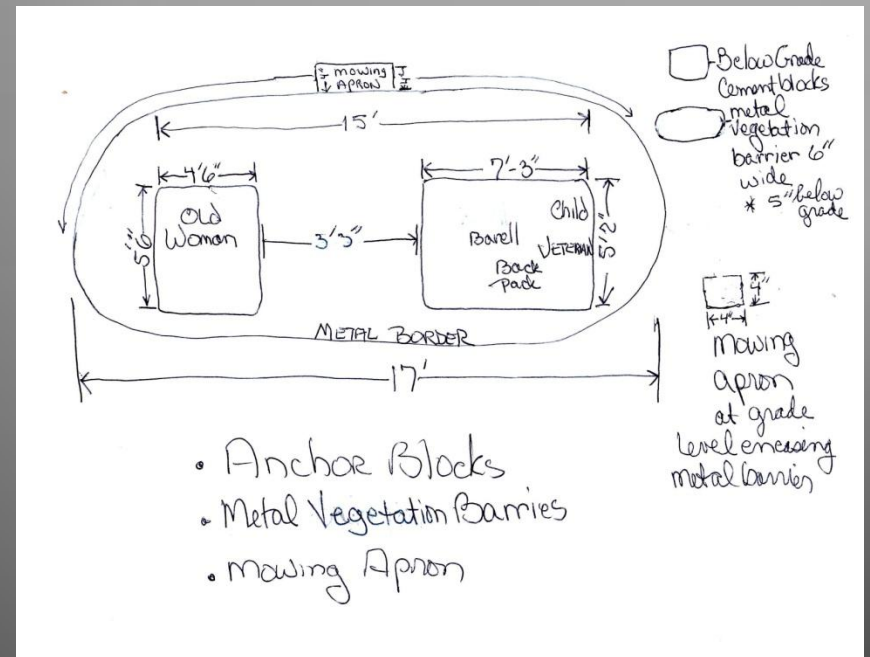 mowing
APRON
15'
4'6"
7'-3"
5'6"
Old
Woman
3'3"
Child
Barell
VETERAN
Back
pack
5'2"
METAL BORDER
17'
Below Grade
Cement blocks
metal
vegetation
barrier 6"
wide
* 5" below
grade
4"
4"
mowing
apron
at grade
level encasing
metal barrier
• Anchor Blocks
• Metal Vegetation Barries
• Mowing Apron